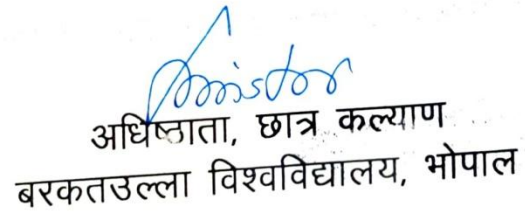 अधिष्ठाता, छात्र कल्याण
बरकतउल्ला विश्वविद्यालय, भोपाल